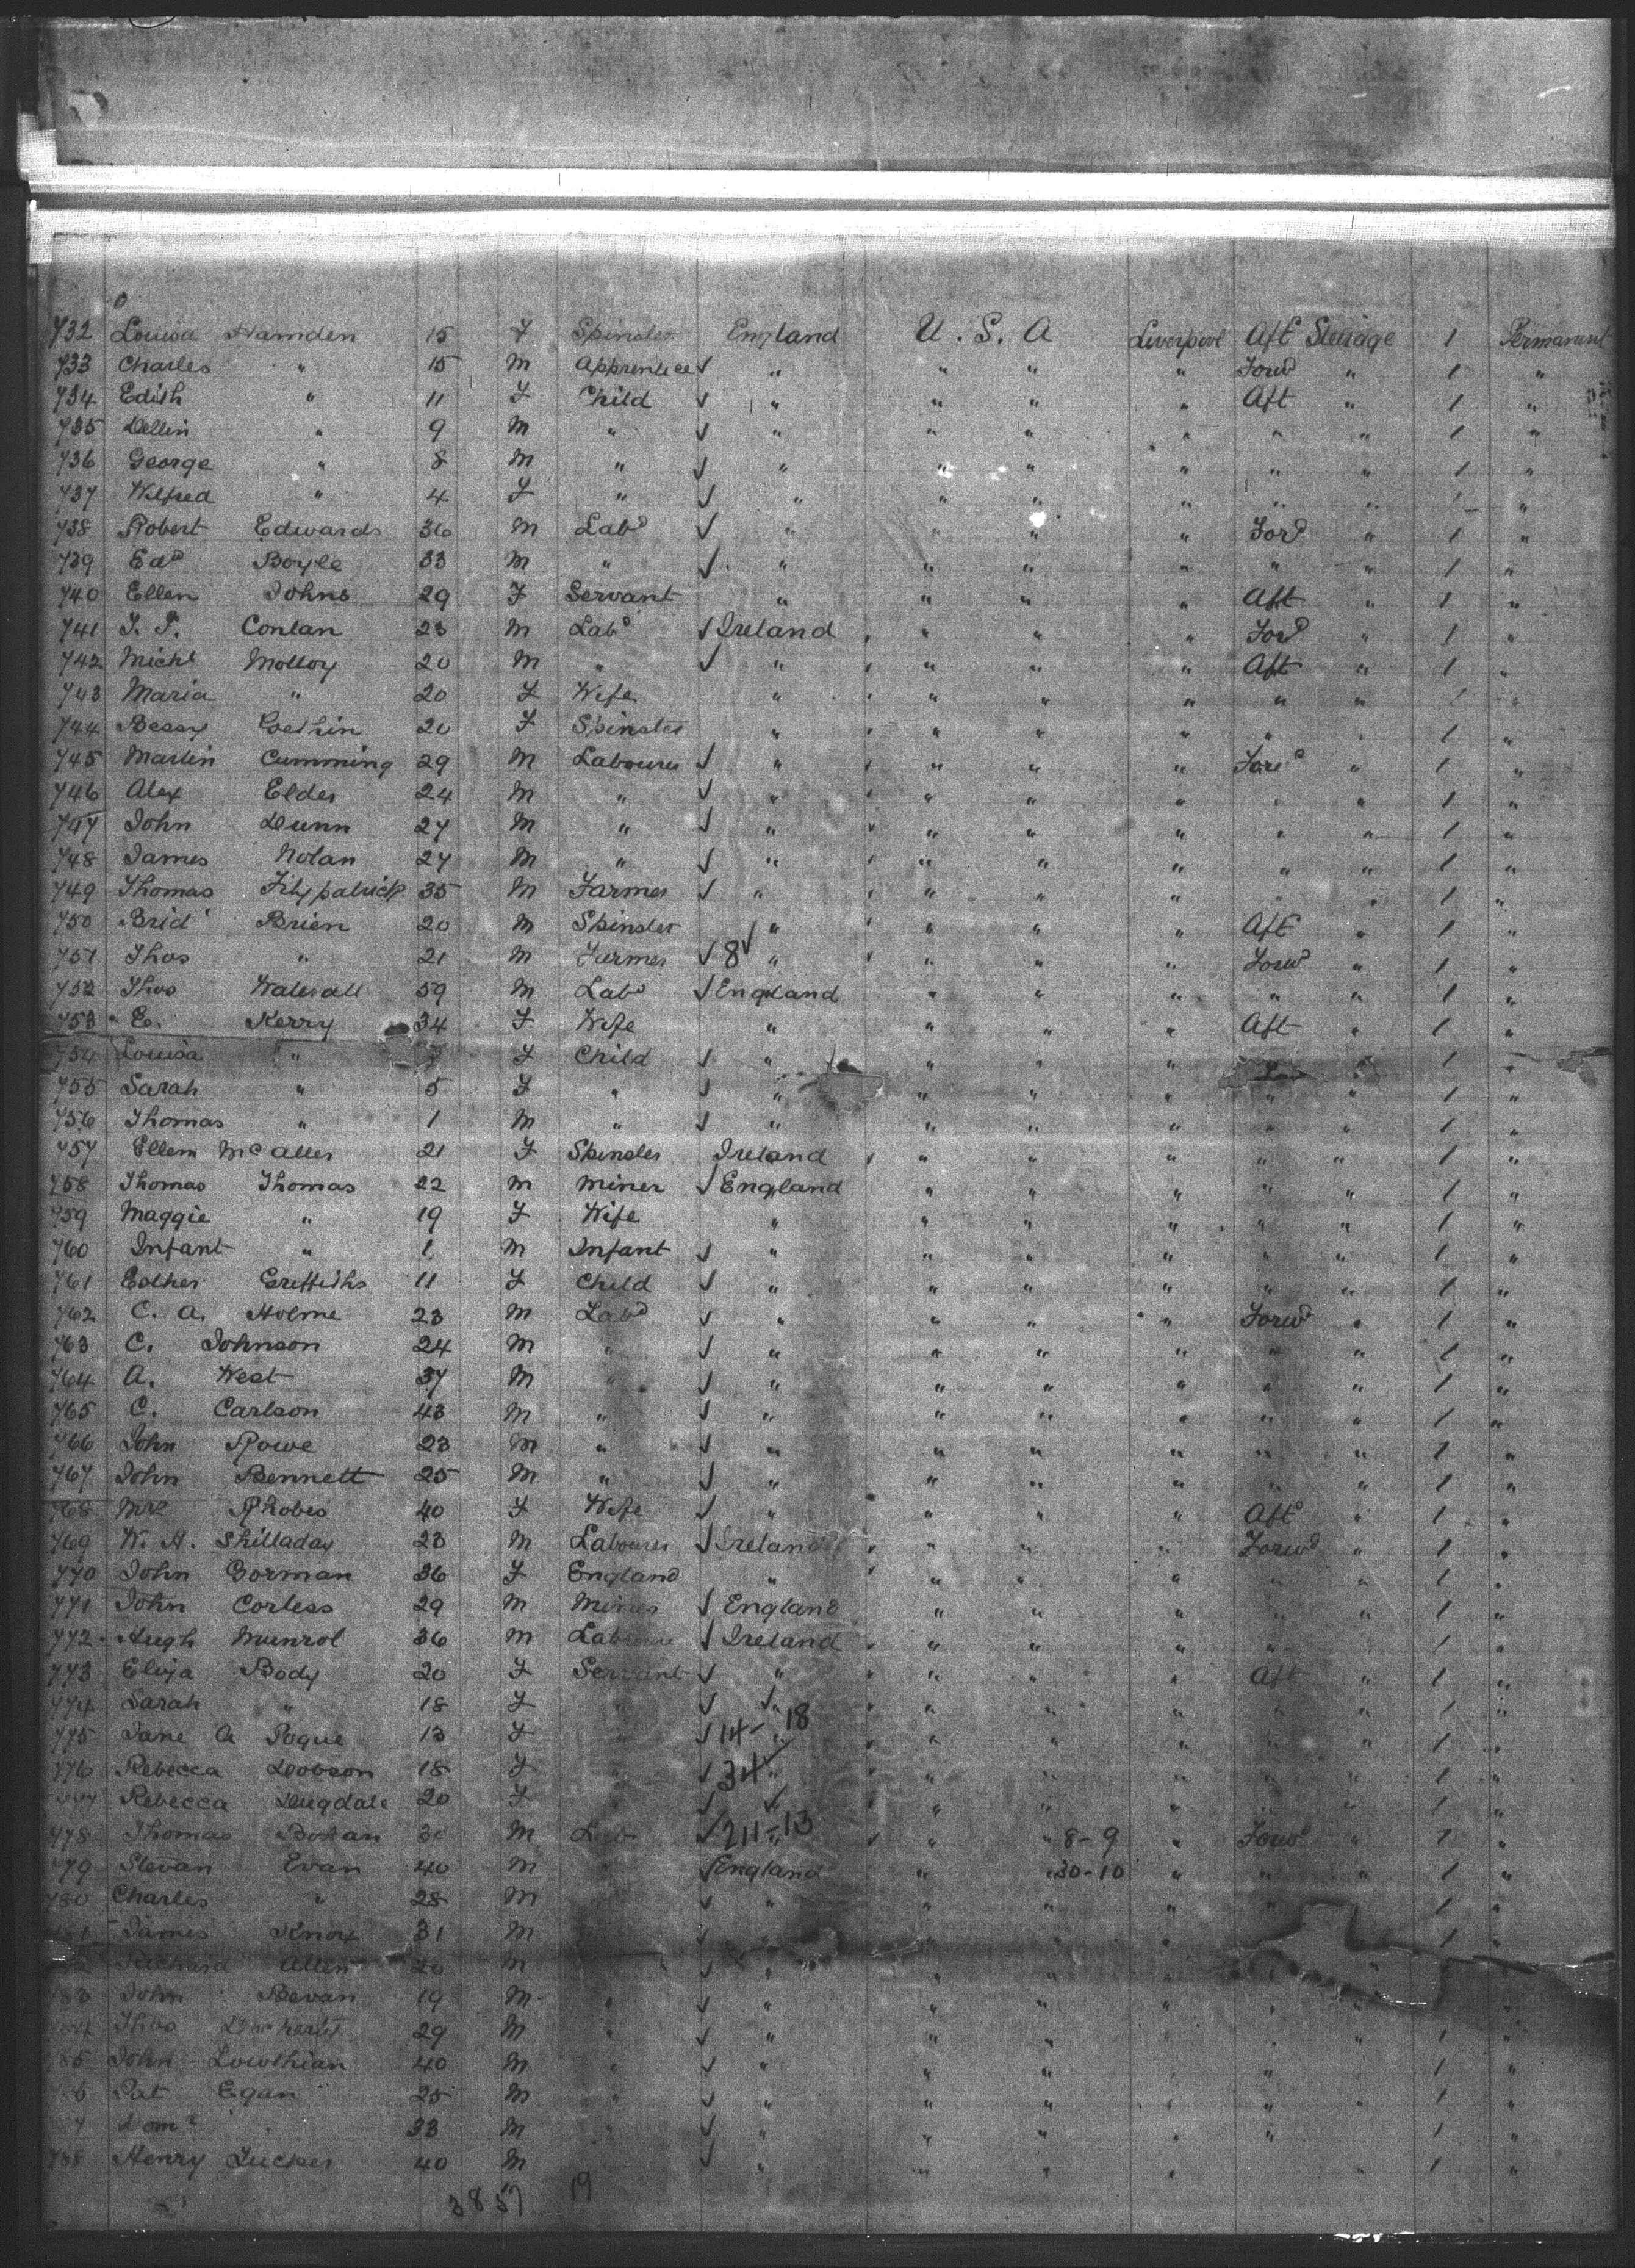 732 Louisa Hamden 15 F Spinster England U. S. A Liverpool Aft Steerage 1 Permanent
733 Charles " 15 M Apprentice √ " " " " Forwd " 1 "
734 Edith " 11 F Child √ " " " " Aft " 1 "
735 " 9 M " √ " " " " " " 1 "
736 George " 8 M " √ " " " " " " 1 "
737 Wilfred " 4 F " √ " " " " " " 1 "
738 Robert Edwards 36 M Labr √ " " " " Ford " 1 "
739 Edd Boyle 33 M " √ " " " " " " 1 "
740 Ellen Johns 29 F Servant " " " " Aft " 1 "
741 Conlan 23 M Labr √ Ireland " " " Ford " 1 "
742 Michl Molloy 20 M " √ " " " " Aft " 1 "
743 Maria " 20 F Wife " " " " " " 1 "
744 Bessy Gethin 20 F Spinster " " " " " " 1 "
745 Martin Cumming 29 M Labourer √ " " " " Ford " 1 "
746 Alex Elder 24 M " √ " " " " " " 1 "
747 John Dunn 27 M " √ " " " " " " 1 "
748 James Nolan 27 M " √ " " " " " " 1 "
749 Thomas Fitzpatrick 35 M Farmer √ " " " " " " 1 "
750 Brid Brien 20 M Spinster " " " " Aft " 1 "
751 Thos " 21 M Farmer √ 8 " " " " Forwd " 1 "
752 Thos 59 M Labr √ England " " " " " 1 "
753 E. Kerry 34 F Wife " " " " Aft " 1 "
754 Louisa " F Child √ " " " " 1 "
755 Sarah " 5 F " √ " " " " " " 1 "
756 Thomas " 1 M " √ " " " " " " 1 "
757 Ellen McAller 21 F Spinster Ireland " " " " " 1 "
758 Thomas Thomas 22 M Miner √ England " " " " " 1 "
759 Maggie " 19 F Wife " " " " " " 1 "
760 Infant " 1 M Infant √ " " " " " " 1 "
761 Esther Griffiths 11 F Child √ " " " " " " 1 "
762 C. A. Holme 23 M Labr √ " " " " Forwd " 1 "
763 C. Johnson 24 M " √ " " " " " " 1 "
764 A. West 37 M " √ " " " " " " 1 "
765 C. Carlson 43 M " √ " " " " " " 1 "
766 John Rowe 23 M " √ " " " " " " 1 "
767 John Bennett 25 M " √ " " " " " " 1 "
768 Mrs Rhobes 40 F Wife √ " " " " Aft " 1 "
769 W. H. Shilladay 23 M Labourer √ Ireland " " " Forwd " 1 "
770 John Gorman 36 F England " " " " " " 1 "
771 John Corless 29 M Miner √ England " " " " " 1 "
772 Hugh Munrol 36 M Labourer √ Ireland " " " " " 1 "
773 Eliza Body 20 F Servant √ " " " " Aft " 1 "
774 Sarah " 18 F " √ " " " " " " 1 "
775 Jane A Pogue 13 F " √ 14-18 " " " " " 1 "
776 Rebecca Dobson 18 F " √ 34 " " " " " 1 "
777 Rebecca Dugdale 20 F √ " " " " " 1 "
778 Thomas 30 M Lab √ 211-13 " " 8-9 " Forwd " 1 "
779 Stevan Evan 40 M " √ England " " 30-10 " " " 1 "
780 Charles " 28 M √ " " " " " " 1 "
James Knox 31 M √ " " " " 1 "
Richard Allen 20 M √ " " " "
83 John Bevan 19 M " √ " " " " " "
84 Thos Docherty 29 M " √ " " " " " 1 "
85 John Lowthian 40 M " √ " " " " " 1 "
6 Pat Egan 25 M " √ " " " " " 1 "
7 33 M " √ " " " " " 1 "
788 Henry Tucker 40 M √ " " " " " 1 "
38 57 19